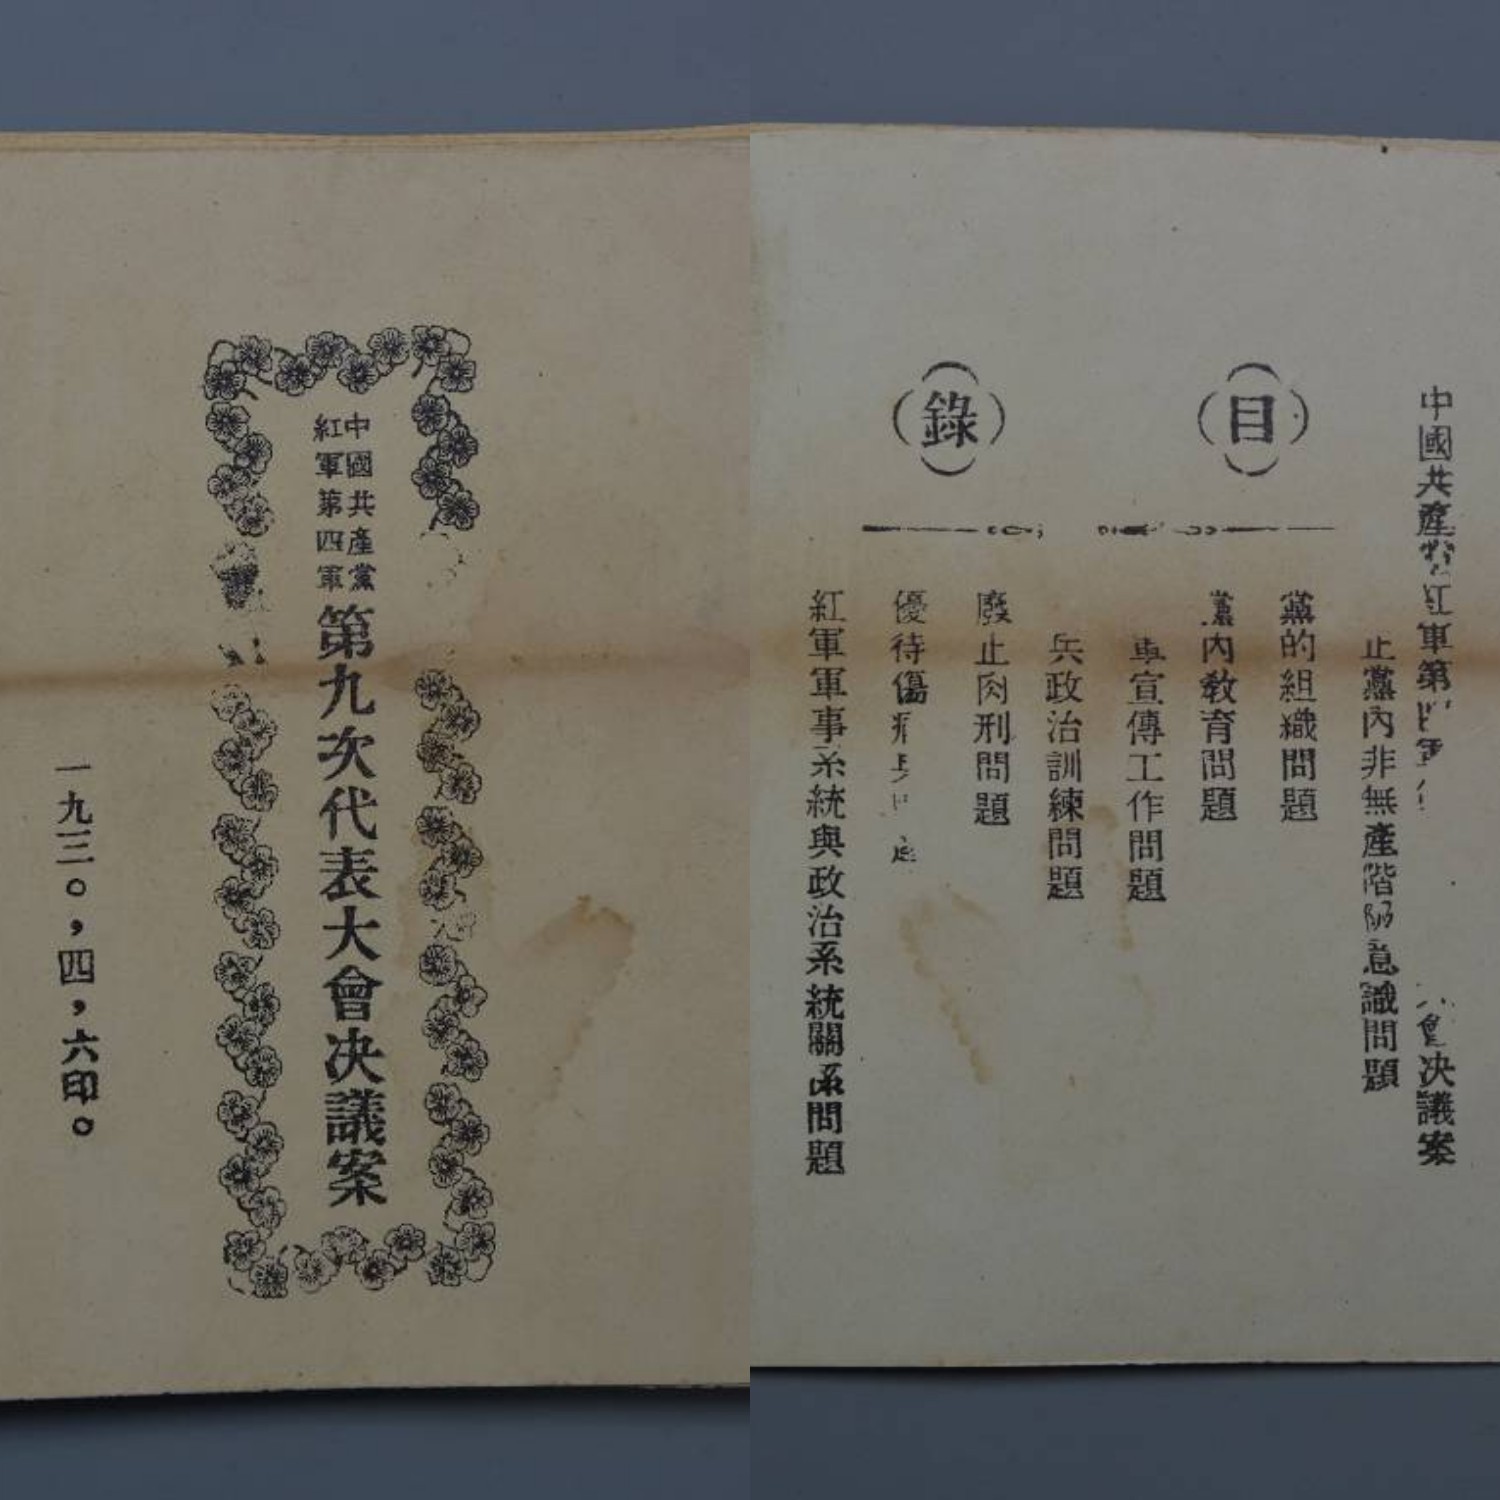 中國共產黨
紅軍第四軍
第九次代表大會決議案
一九三〇,四,六印。
中國共產 紅軍第 決議案
(目)(錄)
止黨內非無產階 意識問題
黨的組織問題
黨內教育問題
軍宣傳工作問題
兵政治訓練問題
廢止肉刑問題
優待傷
紅軍軍事系統與政治系統關係問題